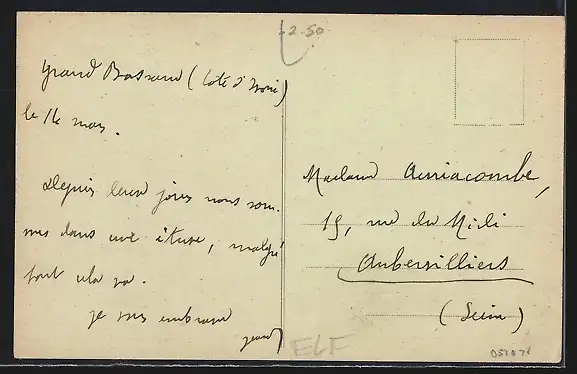 2-50
Grand Bassam (Côte d'Ivoire)
le 16 mars.
Depuis deux jours nous som-
mes dans une étuve, malgré
tout cela va.
je vous embrasse
Madame Auriacombe,
15, rue du Midi
Aubervilliers
(Seine)
ELF